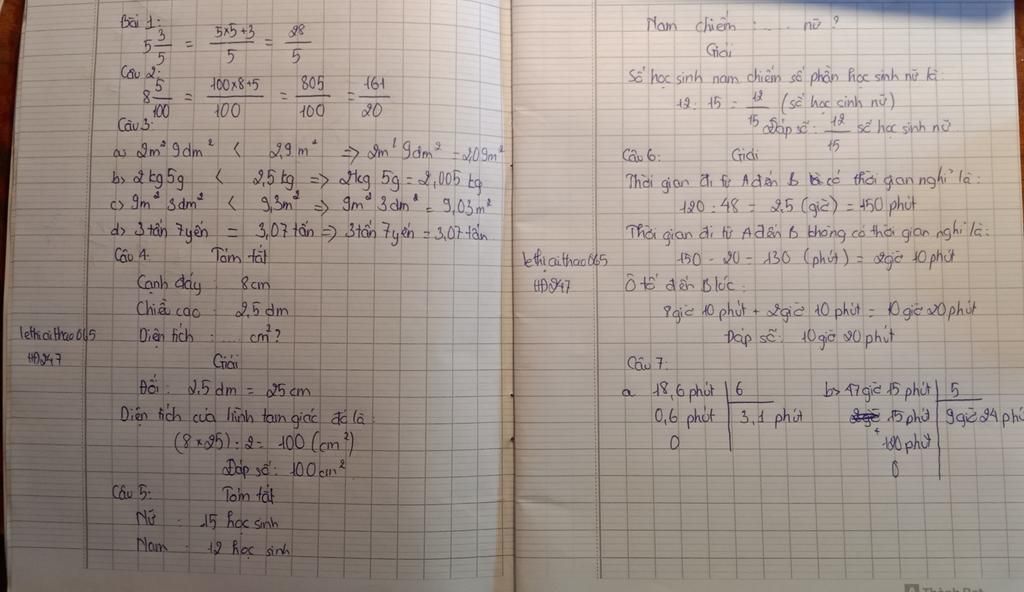 Bài 1:
5 3/5 = (5×5+3)/5 = 28/5
Câu 2:
8 5/100 = (100×8+5)/100 = 805/100 = 161/20
Câu 3:
a) 2m² 9dm² < 2,9m² => 2m² 9dm² = 2,09m²
b) 2kg 5g < 2,5kg => 2kg 5g = 2,005kg
c) 9m² 3dm² < 9,3m² => 9m² 3dm² = 9,03m²
d) 3 tấn 7 yến = 3,07 tấn => 3 tấn 7 yến = 3,07 tấn
Câu 4: Tóm tắt
Cạnh đáy: 8cm
Chiều cao: 2,5 dm
Diện tích: .... cm²?
lethicithao065
HĐ247
Giải
Đổi: 2,5 dm = 25 cm
Diện tích của hình tam giác đó là:
(8×25):2 = 100 (cm²)
Đáp số: 100cm²
Câu 5: Tóm tắt
Nữ : 15 học sinh
Nam : 12 học sinh
Nam chiếm : .... nữ?
Giải
Số học sinh nam chiếm số phần học sinh nữ là:
12 : 15 = 12/15 (số học sinh nữ)
Đáp số: 12/15 số học sinh nữ
Câu 6: Giải
Thời gian đi từ A đến B có thời gian nghỉ là:
120 : 48 = 2,5 (giờ) = 150 phút
Thời gian đi từ A đến B không có thời gian nghỉ là:
150 - 20 = 130 (phút) = 2 giờ 10 phút
lethicithao065
HĐ247
Ô tô đến B lúc:
8 giờ 10 phút + 2 giờ 10 phút = 10 giờ 20 phút
Đáp số: 10 giờ 20 phút
Câu 7:
a 18,6 phút | 6
0,6 phút | 3,1 phút
0
b) 47 giờ 15 phút | 5
15 phút | 9 giờ 24 phú
120 phút
0